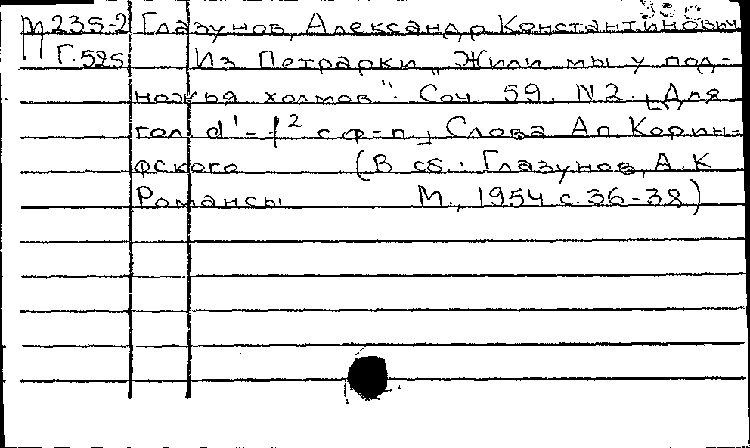 М 235-2 Глазунов, Александр Константинович
Г. 525 Из Петрарки „Жили мы у под-
ножья холмов“. Соч. 59. N2. [Для
гол. d¹-f² с ф-п.] Слова Ап. Корин-
фского (В сб.: Глазунов, А. К
Романсы М., 1954 с. 36-38)